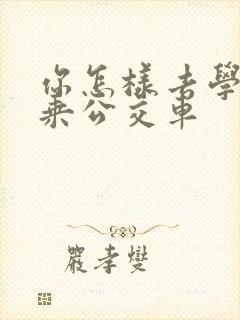 你怎樣去學
乘公交車
嚴孝燮